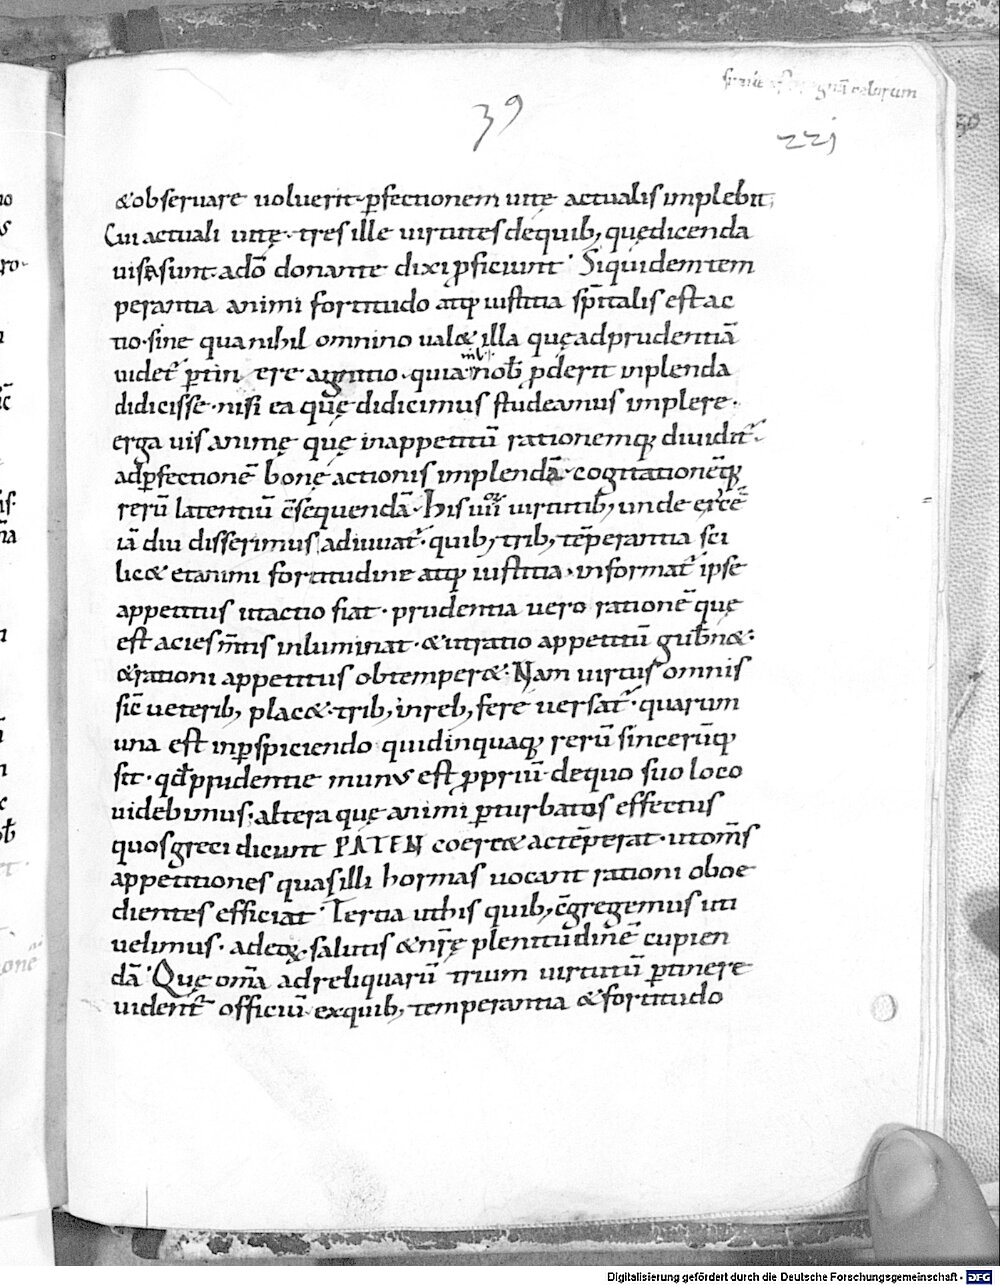 39
221
&observare voluerit· ꝑfectionem vitę actualis implebit;
Cui actuali vitę· tres ille virtutes de quib; quędicenda
visa sunt· ad̄o donante dixi ꝓficiunt· Siquidem tem
perantia animi fortitudo atq; iustitia sp̄italis est ac
tio· sine qua nihil omnino val& illa quę ad prudentiā
videt̄ ꝑtin ere agnitio· quia nihil nob̄ ꝓderit inplenda
didicisse· nisi ea quę didicimus studeamus implere·
erga vis animę quę in appetitū rationemq; dividit̄·
ad ꝑfectionē bonę actionis implendā· cogitationēq;
rerū latentiū c̄sequendā· His iiiior virtutib; unde
iā diu disserimus adiuuat̄· quib; trib; tēperantia sci
lic& etanimi fortitudine atq; iustitia· informat̄ ipse
appetitus ut actio fiat· prudentia vero rationē quę
est acies m̄tis inluminat· &ut ratio appetitū gub̄n&·
&rationi appetitus obtemper&· Nam virtus omnis
sic̄ veterib; plac&· trib; in reb; fere versat̄· quarum
una est in ꝑspiciendo quid in quaq; rerū sincerūq;
sit· qd̄ prudentie munus est ꝓpriū· de quo suo loco
videbimus· altera quę animi ꝑturbatos effectus
quos greci dicunt PATEN coerc& ac tēperat· ut om̄s
appetitiones quas illi hormas vocant rationi oboe
dientes efficiat· Tertia ut his quib; c̄gregemus uti
velimus· ad salutis &nr̄ę plenitudinē cupien
dā· Quę om̄a ad reliquarū trium virtutū ꝑtinere
vident̄ officiū· ex quib; temperantia &fortitudo
Digitalisierung gefördert durch die Deutsche Forschungsgemeinschaft - DFG